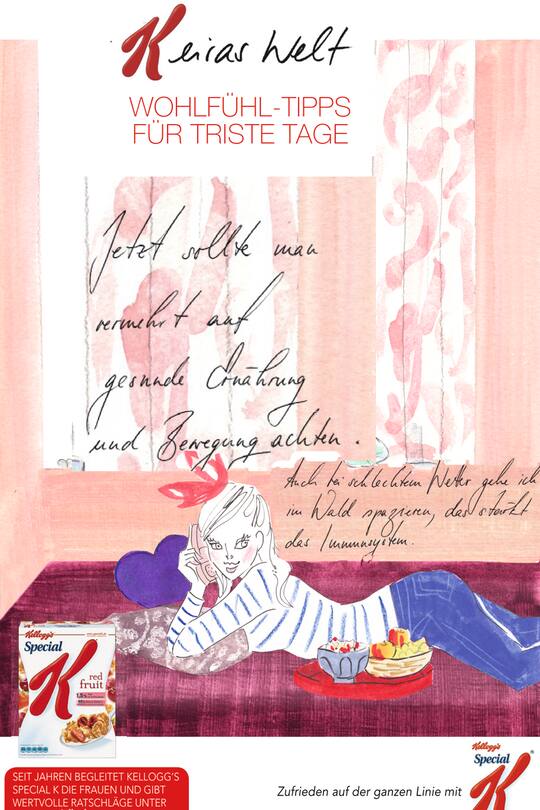 Keiras Welt
WOHLFÜHL-TIPPS
FÜR TRISTE TAGE
Jetzt sollte man
vermehrt auf
gesunde Ernährung
und Bewegung achten.
Auch bei schlechtem Wetter gehe ich
im Wald spazieren, das stärkt
das Immunsystem.
Kellogg's
Special
K
red
fruit
SEIT JAHREN BEGLEITET KELLOGG'S
SPECIAL K DIE FRAUEN UND GIBT
WERTVOLLE RATSCHLÄGE UNTER
Zufrieden auf der ganzen Linie mit
Kellogg's
Special
K